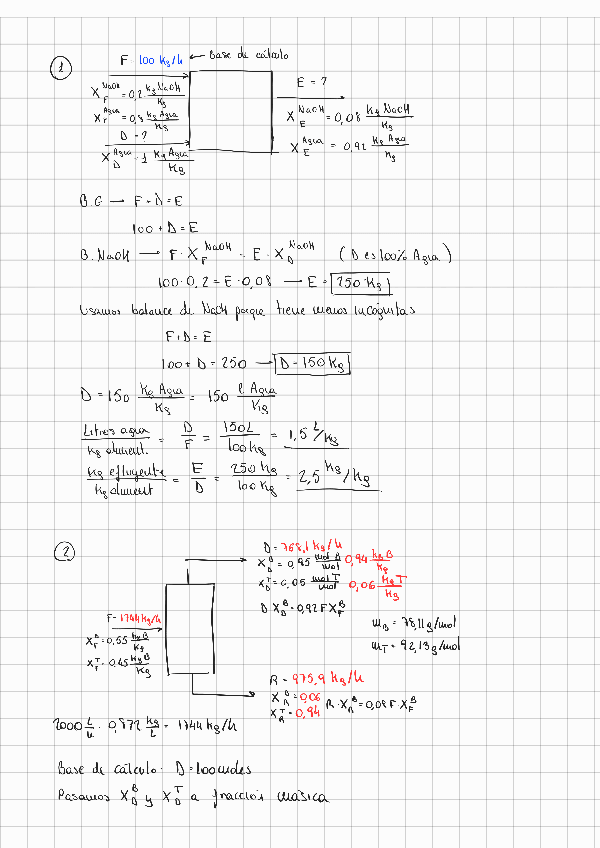 1
F = 100 kg/h ← Base de cálculo
X_F^NaOH = 0,2 kg NaOH/kg
X_F^Agua = 0,8 kg Agua/kg
D = ?
X_D^Agua = 1 kg Agua/kg
E = ?
X_E^NaOH = 0,08 kg NaOH/kg
X_E^Agua = 0,92 kg Agua/kg
B.G → F + D = E
100 + D = E
B. NaOH → F · X_F^NaOH = E · X_D^NaOH (D es 100% Agua)
100 · 0,2 = E · 0,08 → E = 250 kg
Usamos balance de NaOH porque tiene menos incógnitas
F + D = E
100 + D = 250 → D = 150 kg
D = 150 kg Agua/kg = 150 l Agua/kg
Litros agua/kg aliment. = D/F = 150L/100kg = 1,5 L/kg
kg efluyente/kg aliment = E/D = 250 kg/100 kg = 2,5 kg/kg
2
D = 768,1 kg/h
X_D^B = 0,95 mol B/mol 0,94 kg B/kg
X_D^T = 0,05 mol T/mol 0,06 kg T/kg
D X_D^B = 0,92 F X_F^B
F = 1744 kg/h
X_F^B = 0,55 kg B/kg
X_F^T = 0,45 kg B/kg
m_B = 78,11 g/mol
m_T = 92,13 g/mol
R = 975,9 kg/h
X_R^B = 0,06
X_R^T = 0,94
R · X_R^B = 0,08 F X_F^B
2000 L/h · 0,872 kg/L = 1744 kg/h
Base de cálculo: D = 100 moles
Pasamos X_D^B y X_D^T a fracción másica